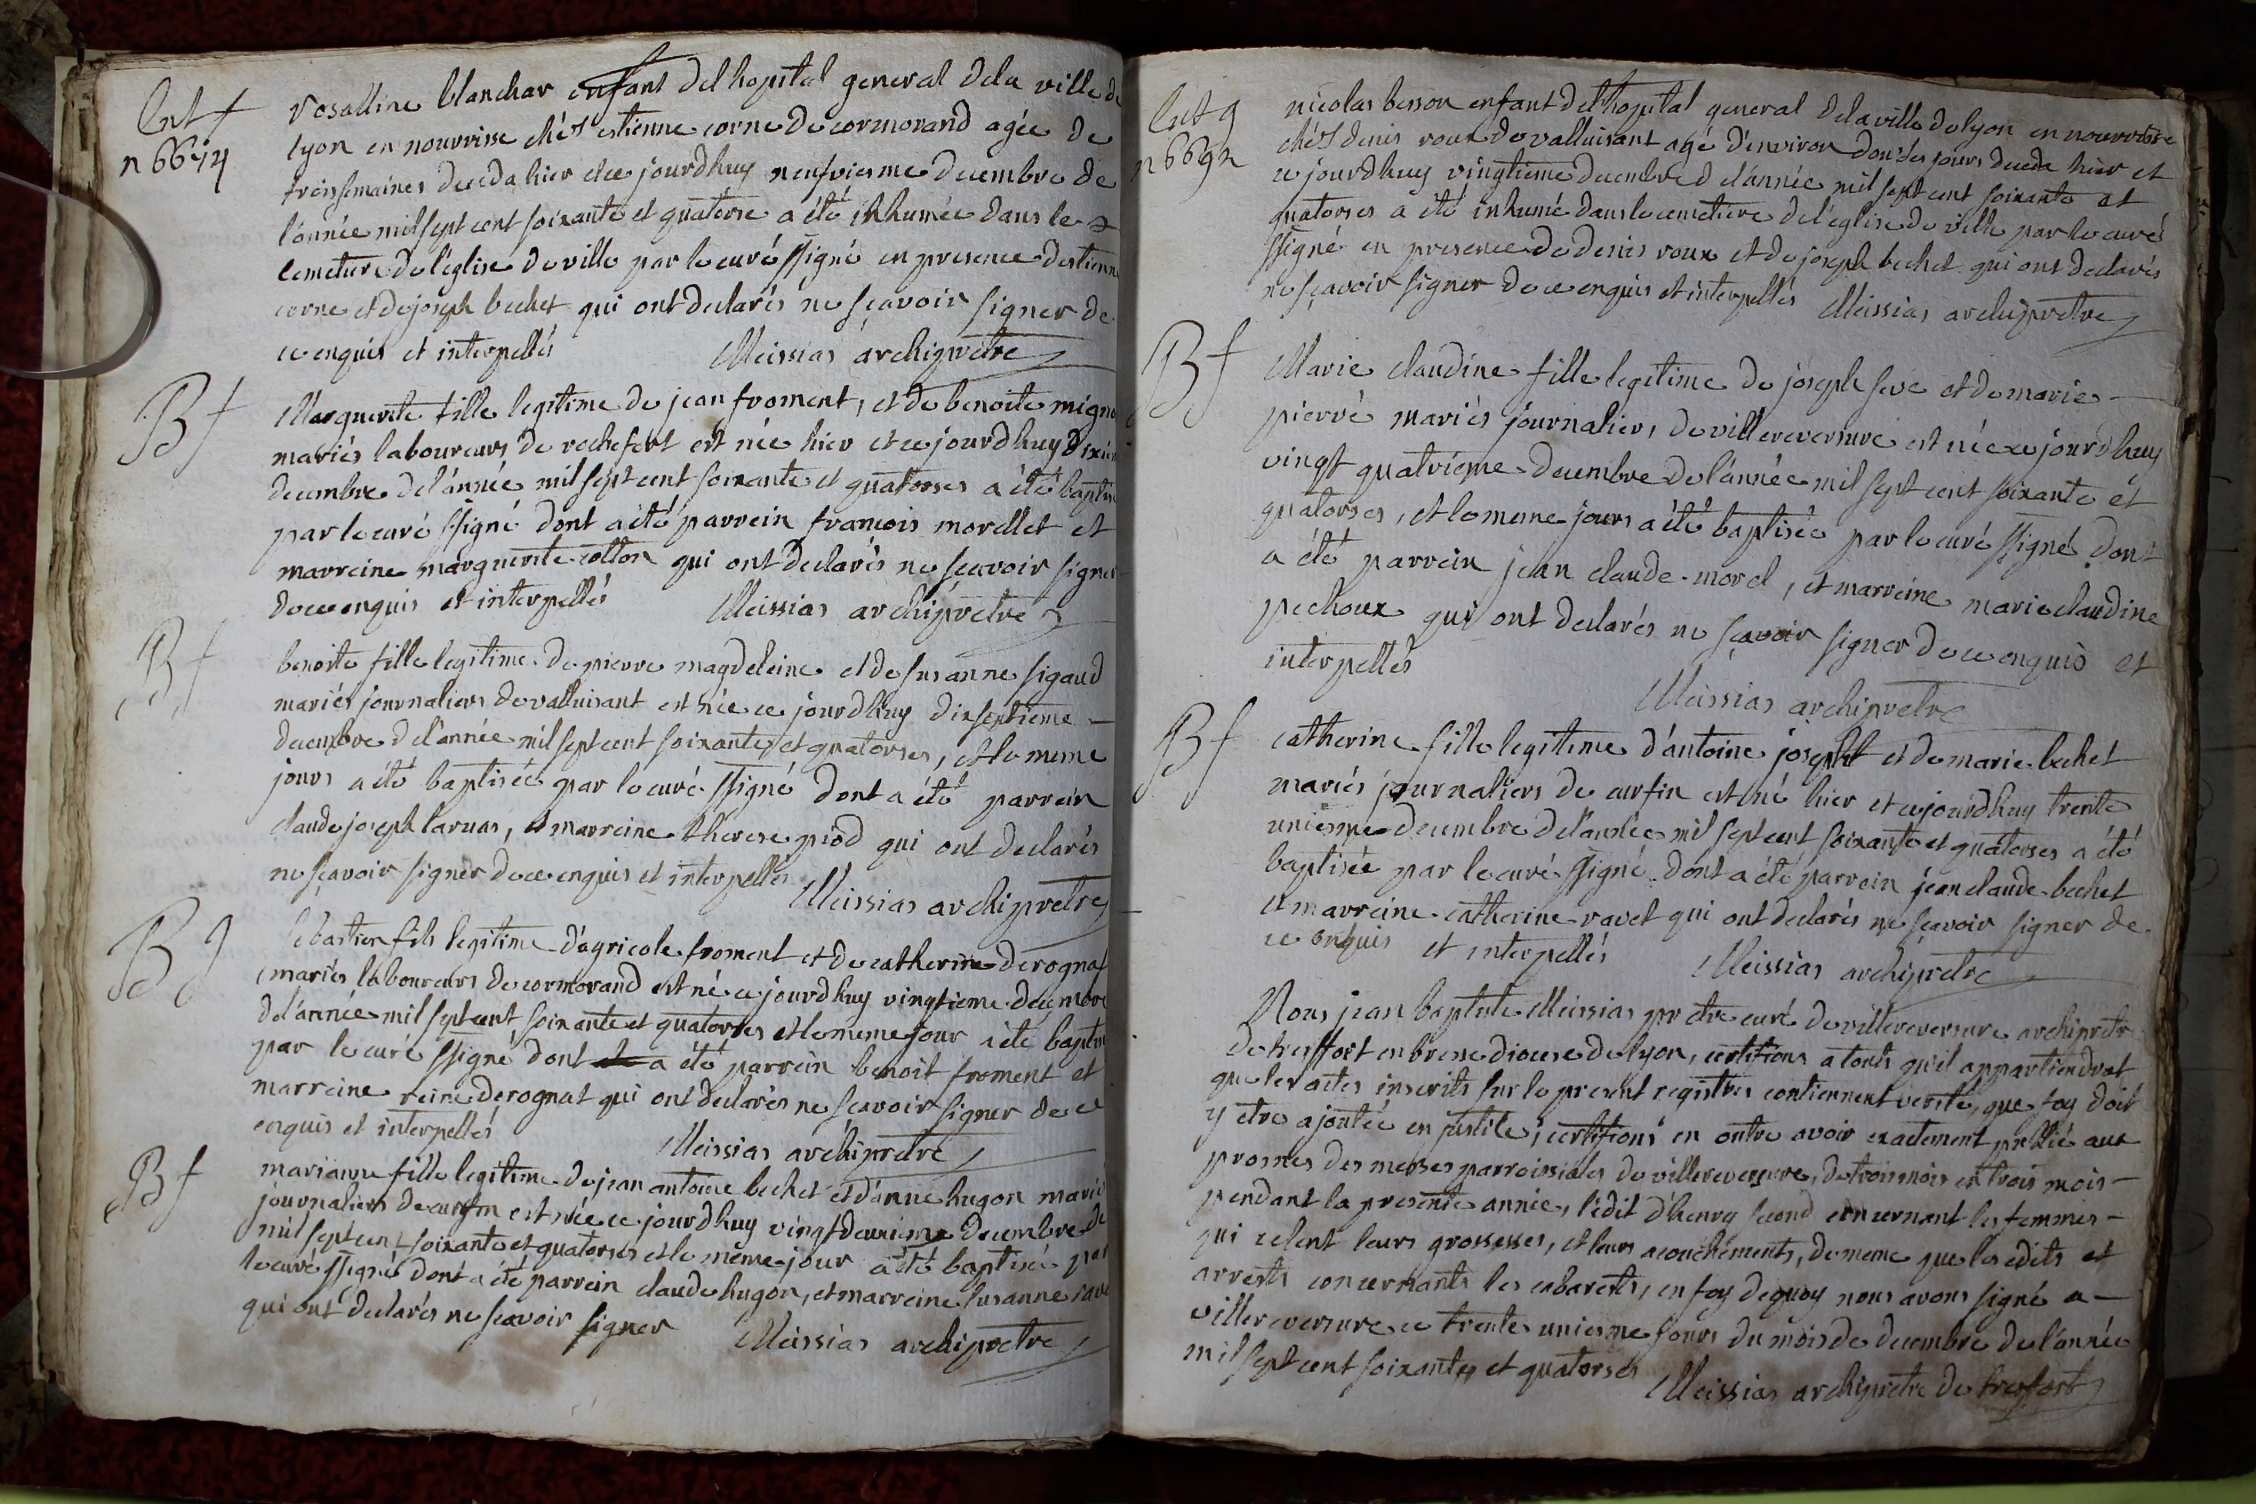 Ent f
n 6674
rosalline blanchar enfant del hopital general dela ville de
lyon en nourrisse chés estienne corne de cormorand agée de
trois semaines deceda hier et ce jourdhuy neufviesme decembre de
l'année mil sept cent soixante et quatorse a été inhumée dans le
cemetiere de l'eglise de ville par le curé ssigné en presence destienne
corne et de joseph bechet qui ont declarés ne sçavoir signer de
ce enquis et interpellés Meissias archipretre
B f
Marguerite fille legitime de jean froment, et de benoite migno
mariés laboureurs de rochefort est née hier et ce jourdhuy dixiem
decembre del'année mil sept cent soixante et quatorses a été baptis
par le curé ssigné dont a été parrein francois morellet et
marreine marguerite cotton qui ont declarés ne sçavoir signer
de ce enquis et interpellés Meissias archipretre
B f
benoite fille legitime de pierre magdeleine et de susanne sigaud
mariés journaliers de valluisant est née ce jourdhuy dixseptieme
decembre d el'année mil sept cent soixante et quatorses, et le meme
jours a été baptisée par le curé ssigné dont a été parrein
claude joseph laruas, et marreine therese piod qui ont declarés
ne sçavoir signer de ce enquis et interpellés Meissias archipretre
B g
sebastien fils legitime d'agricole froment et de catherine derognat
mariés laboureurs de cormorand est né ce jourdhuy vingtieme decembre
del'année mil sept cent soixante et quatorses et le meme jour a été baptis
par le curé ssigné dont a été parrein benoit froment et
marreine reine derognat qui ont declarés ne sçavoir signer de ce
enquis et interpellés Meissias archipretre
B f
marianne fille legitime de jean antoine bechet et d'anne hugon mariés
journaliers de curfin est née ce jourdhuy vingt deuxieme decembre de
mil sept cent soixante et quatorses et le même jour a été baptisée par
le curé ssigné dont a été parrein claude hugon, et marreine susanne rave
qui ont declarés ne sçavoir signer Meissias archipretre
Ent g
n 6692
nicolas besson enfant del hopital general dela ville de lyon en nourrisse
chés denis roux de valluisant agé d'environ douses jours deceda hier et
ce jourdhuy vingtieme decembre d el'année mil sept cent soixante et
quatorses a été inhumé dans le cemetiere de l'eglise de ville par le curé
ssigné en presence de denis roux et de joseph bechet qui ont declarés
ne sçavoir signer de ce enquis et interpellés Meissias archipretre
B f
Marie claudine fille legitime de joseph seve et de marie
pierré mariés journaliers de villereversure est née ce jourdhuy
vingt quatrieme decembre de l'année mil sept cent soixante et
quatorses, et le meme jours a été baptisée par le curé ssigné dont
a été parrein jean claude morel, et marreine marie claudine
pechoux qui ont declarés ne sçavoir signer de ce enquis et
interpellés
Meissias archipretre
B f
catherine fille legitime d'antoine joseph et de marie bechet
mariés journaliers de curfin est né hier et ce jourdhuy trente
uniesme decembre del'année mil sept cent soixante et quatorses a été
baptisée par le curé ssigné dont a été parrein jean claude bechet
et marreine catherine ravet qui ont declarés ne sçavoir signer de
ce enquis et interpellés Meissias archipretre
Nous jean baptiste Meissias pretre curé de villereversure archipretre
de treffort en bresse diocese de lyon, certifions a touts qu'il appartiendrat
que les actes inscrits sur le present registres contiennent verité, que foy doit
y etre ajoutée en justice, certifions en outre avoir exactement publié aux
prosnes des messes parroissiales de villereversure, de trois mois en trois mois
pendant la presente année, l'edit d'henry second concernant les femmes
qui celent leurs grossesses, et leurs acouchements, de meme que les edits et
arrests concernants les cabarests, en foy dequoy nous avons signé a
villereversure ce trente uniesme jours du mois de decembre de l'année
mil sept cent soixante et quatorses Meissias archipretre de treffort